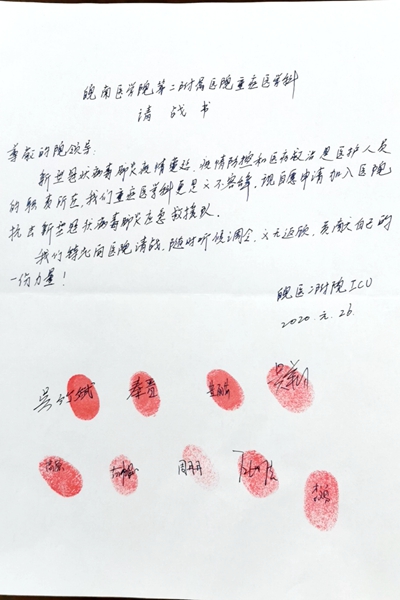 皖南医学院第二附属医院重症医学科
请战书
尊敬的院领导：
新型冠状病毒肺炎疫情蔓延，疫情防控和医疗救治是医护人员
的职责所在，我们重症医学科更是义不容辞，现自愿申请加入医院
抗击新型冠状病毒肺炎应急救援队。
我们特此向医院请战，随时听候调令，义无返顾，贡献自己的
一份力量！
皖医二附院ICU
2020.元.26.
秦青
周丹丹